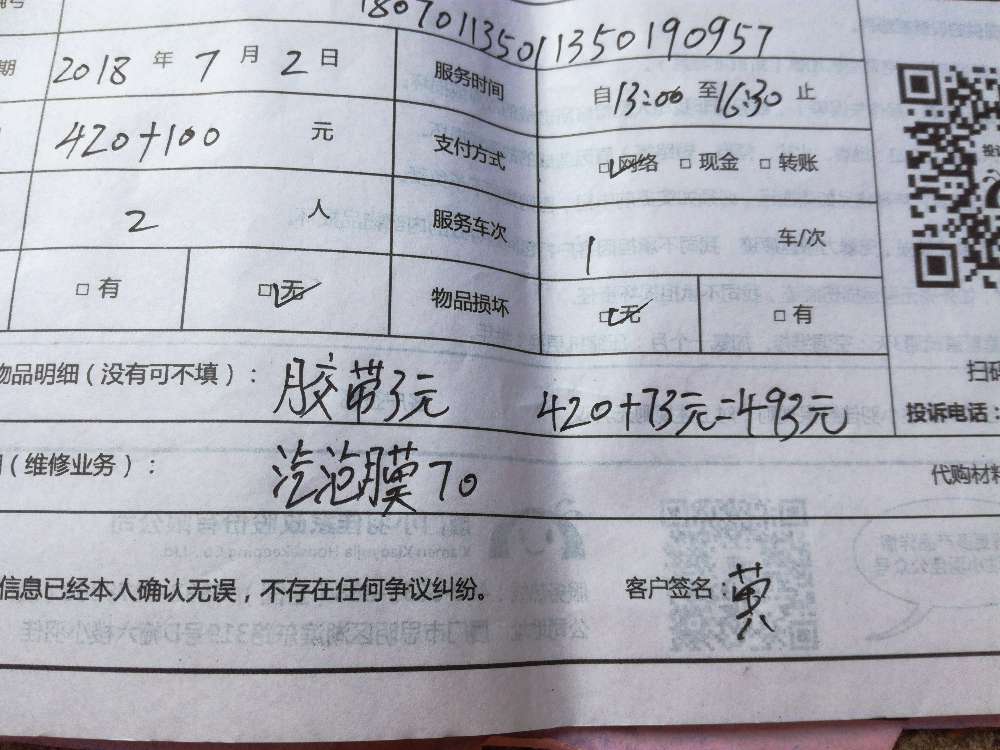 18070113501350190957
期 2018 年 7 月 2 日 服务时间 自13:00 至16:30 止
420+100 元 支付方式 □网络 □现金 □转账
2 人 服务车次 1 车/次
□有 □无 物品损坏 □无 □有
物品明细（没有可不填）： 胶带3元 420+73元=493元
扫码
投诉电话：
（维修业务）： 汽泡膜70
代购材料
信息已经本人确认无误，不存在任何争议纠纷。 客户签名：黄